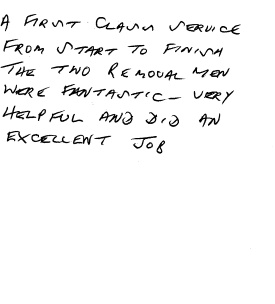 A FIRST CLASS SERVICE
FROM START TO FINISH
THE TWO REMOVAL MEN
WERE FANTASTIC - VERY
HELPFUL AND DID AN
EXCELLENT JOB